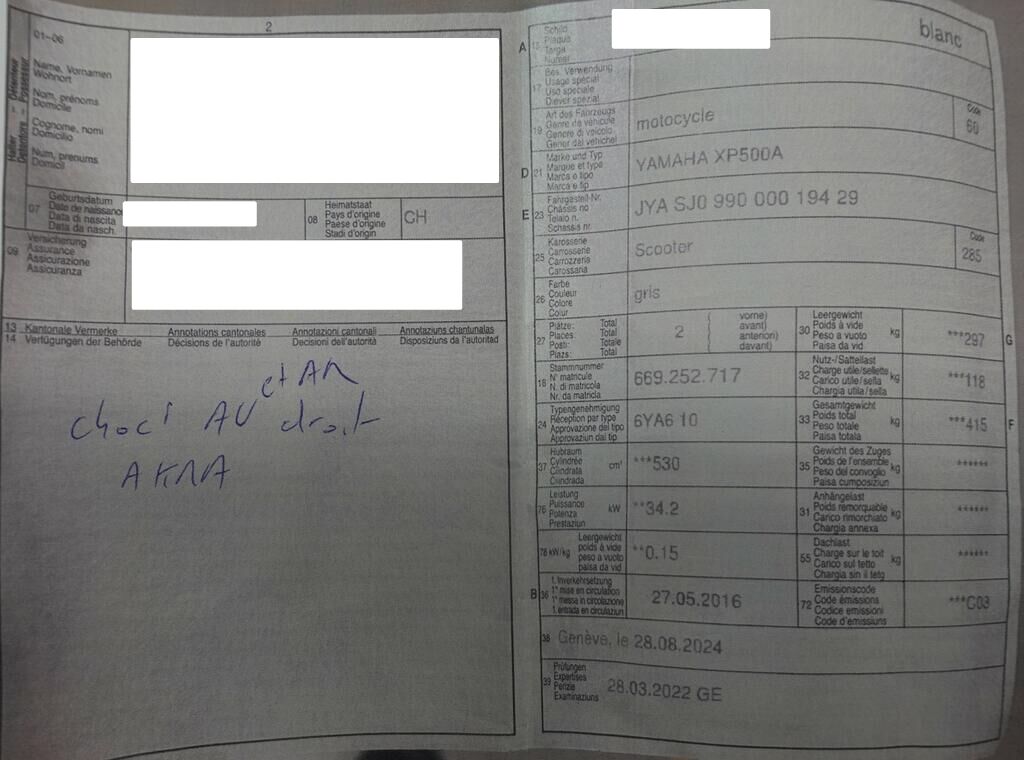 2
01-06
Halter Détenteur
Detentore Possessur
Name, Vornamen
Wohnort
Nom, prénoms
Domicile
Cognome, nomi
Domicilio
Num, prenums
Domicil
07 Geburtsdatum
Date de naissance
Data di nascita
Data da nasch.
08 Heimatstaat
Pays d'origine
Paese d'origine
Stadi d'origin
CH
09 Versicherung
Assurance
Assicurazione
Assicuranza
13 Kantonale Vermerke Annotations cantonales Annotazioni cantonali Annotaziuns chantunalas
14 Verfügungen der Behörde Décisions de l'autorité Decisioni dell'autorità Disposiziuns da l'autoritad
et AR
choc AV droit
A 15 Schild
Plaque
Targa
Numer
blanc
17 Bes. Verwendung
Usage spécial
Uso speciale
Diever spezial
19 Art des Fahrzeugs
Genre de véhicule
Genere di veicolo
Gener dal vehichel
motocycle
Code
60
D 21 Marke und Typ
Marque et type
Marca e tipo
Marca e tip
YAMAHA XP500A
E 23 Fahrgestell-Nr.
Châssis no
Telaio n.
Schassis nr.
JYA SJ0 990 000 194 29
25 Karosserie
Carrosserie
Carrozzeria
Carossaria
Scooter
Code
285
26 Farbe
Couleur
Colore
Colur
gris
27 Plätze: Total
Places: Total
Posti: Totale
Plazs: Total
2
( vorne)
( avant)
( anteriori)
( davant)
30 Leergewicht
Poids à vide
Peso a vuoto
Paisa da vid
kg
***297
G
18 Stammnummer
N° matricule
N. di matricola
Nr. da matricla
669.252.717
32 Nutz-/Sattellast
Charge utile/sellette
Carico utile/sella
Chargia utila/sella
kg
***118
24 Typengenehmigung
Réception par type
Approvazione del tipo
Approvaziun dal tip
6YA6 10
33 Gesamtgewicht
Poids total
Peso totale
Paisa totala
kg
***415
F
37 Hubraum
Cylindrée
Cilindrata
Cilindrada
cm³
***530
35 Gewicht des Zuges
Poids de l'ensemble
Peso del convoglio
Paisa cumposiziun
kg
******
76 Leistung
Puissance
Potenza
Prestaziun
kW
**34.2
31 Anhängelast
Poids remorquable
Carico rimorchiato
Chargia annexa
kg
******
78 kW/kg
Leergewicht
poids à vide
peso a vuoto
paisa da vid
**0.15
55 Dachlast
Charge sur le toit
Carico sul tetto
Chargia sin il tetg
kg
******
B 36 1. Inverkehrsetzung
1re mise en circulation
1a messa in circolazione
1. entrada en circulaziun
27.05.2016
72 Emissionscode
Code émissions
Codice emissioni
Code d'emissiuns
***C03
38 Genève, le 28.08.2024
39 Prüfungen
Expertises
Perizie
Examinaziuns
28.03.2022 GE